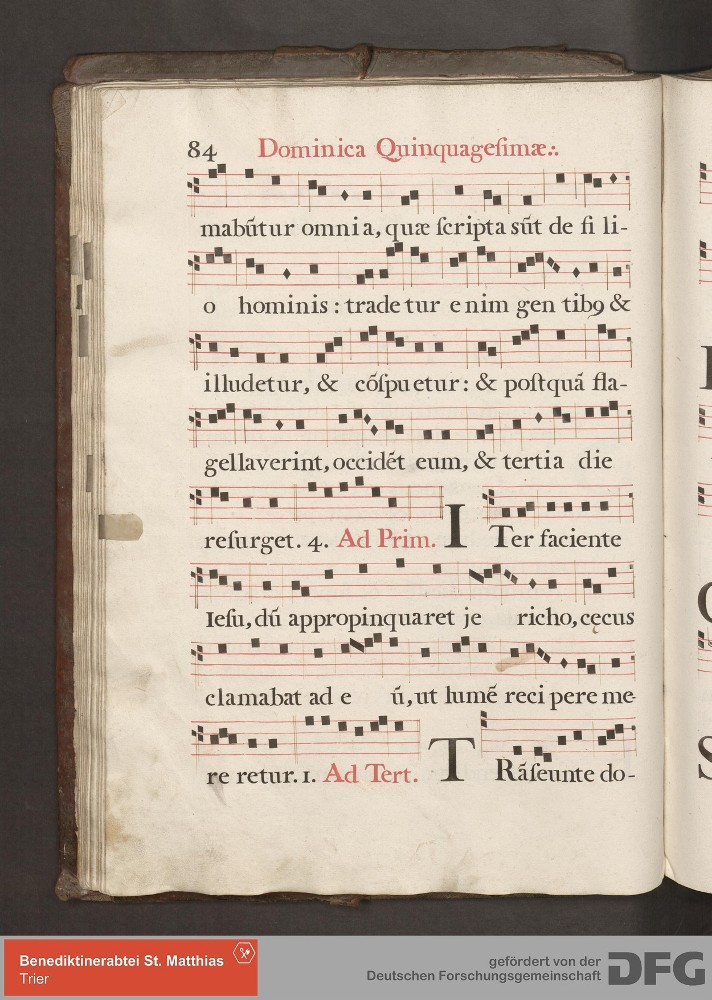 84 Dominica Quinquageſimæ:.
mabũtur omnia, quæ ſcripta sũt de fi li-
o hominis : trade tur e nim gen tibꝯ &
illudetur, & cõſpuetur: & poſtquã fla-
gellaverint, occidẽt eum, & tertia die
reſurget. 4. Ad Prim. I Ter faciente
Ieſu, dũ appropinquaret je richo, cęcus
clamabat ad e ũ, ut lumẽ reci pere me-
re retur. 1. Ad Tert. T Rãſeunte do-
Benediktinerabtei St. Matthias
Trier
gefördert von der
Deutschen Forschungsgemeinschaft DFG